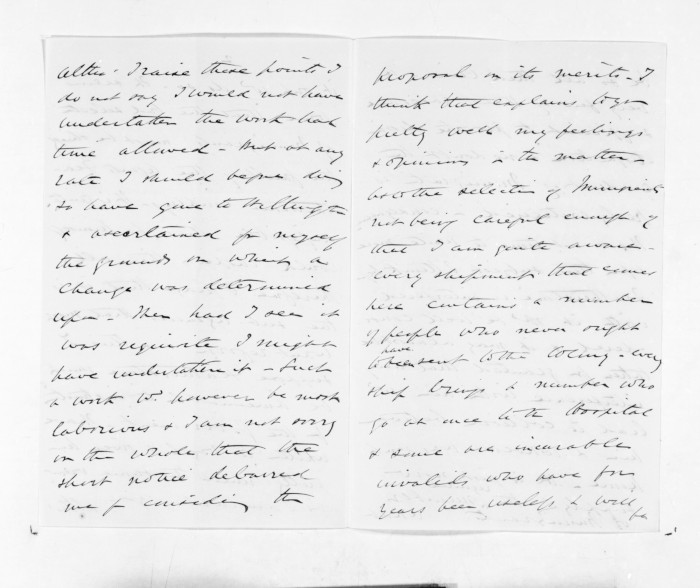 altho' I raise these points I
do not say I would not have
undertaken the work had
time allowed - But at any
rate I should before doing
so have gone to Wellington
& ascertained for myself
the grounds on which a
change was determined
upon - Then had I seen it
was requisite I might
have undertaken it - Such
a work wd. however be most
laborious & I am not sorry
on the whole that the
short notice debarred
me from considering the
proposal on its merits - I
think that explains to you
pretty well my feelings
& opinions in the matter -
As to the selection of Immigrants
not being careful enough of
that I am quite aware -
every shipment that comes
here contains a number
of people who never ought
to have been sent to the Colony - every
ship brings a number who
go at once to the Hospital
& some are incurable
invalids who have for
years been useless & will be